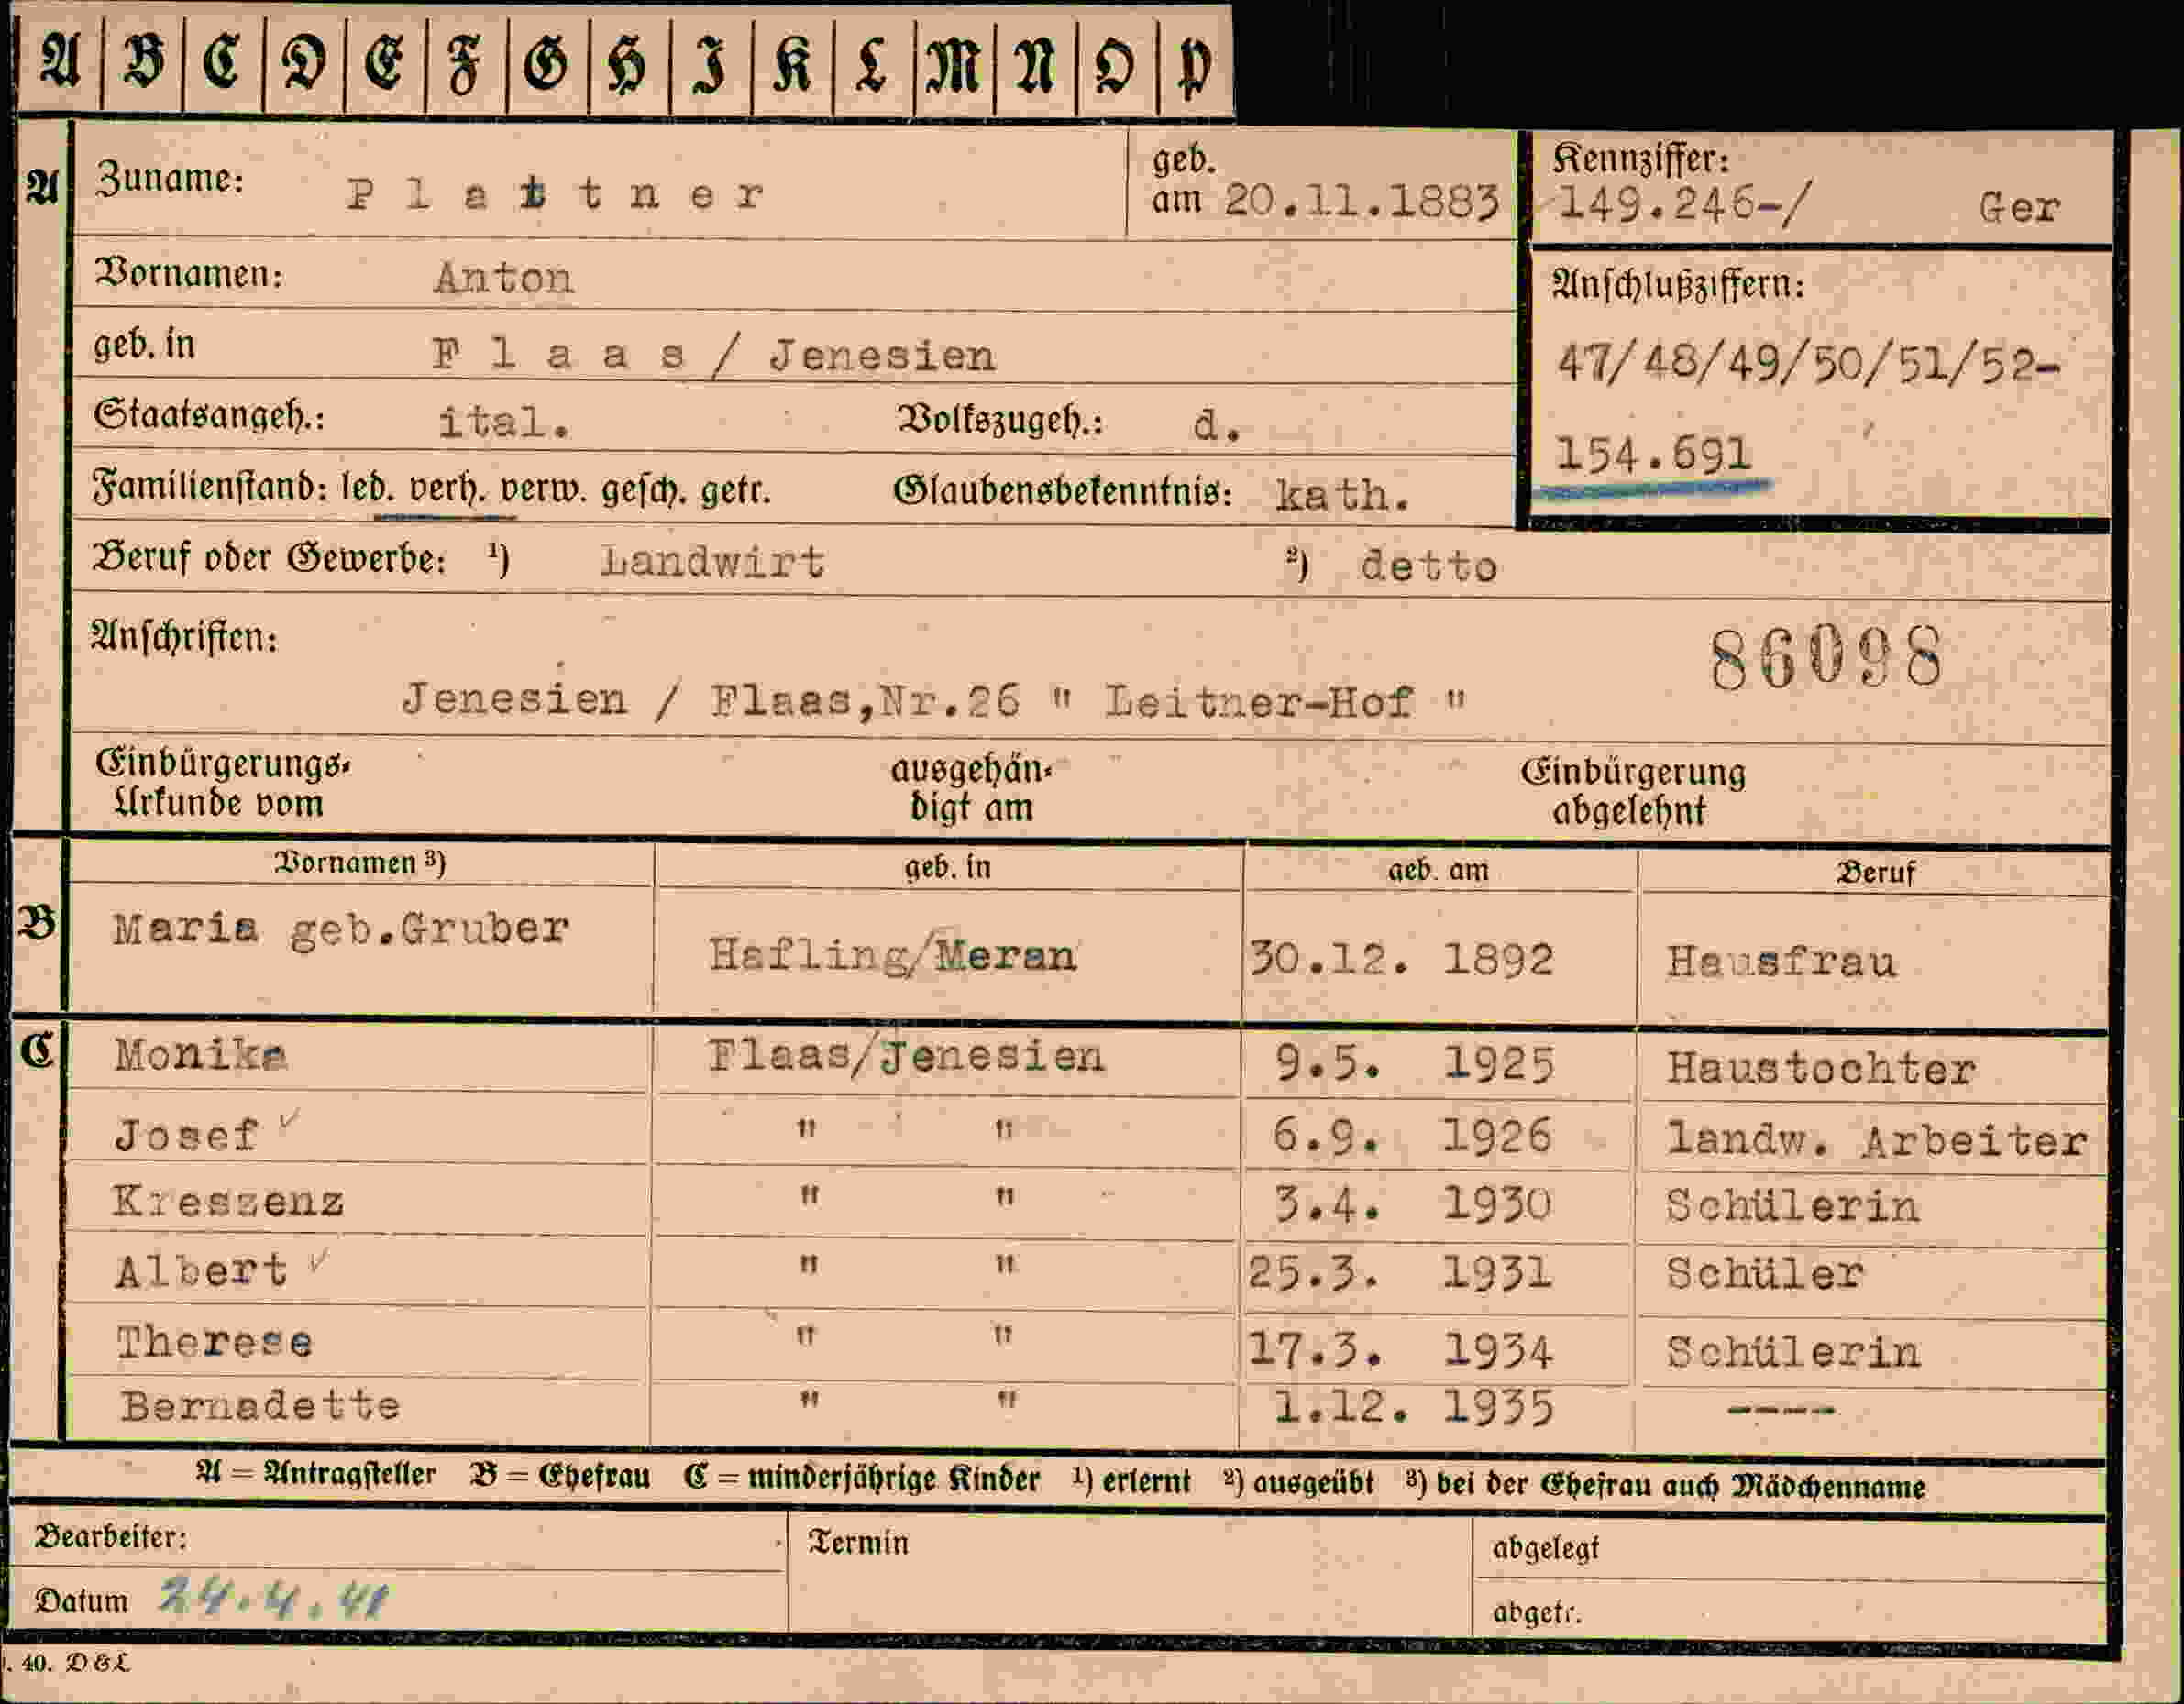 A B C D E F G H I K L M N O P
A Zuname: Plattner geb. am 20.11.1883 Kennziffer: 149.246-/ Ger
Vornamen: Anton
Anschlußziffern:
geb. in Flaas / Jenesien
47/48/49/50/51/52-
Staatsangeh.: ital. Volkszugeh.: d.
154.691
Familienstand: led. verh. verw. gesch. getr. Glaubensbekenntnis: kath.
Beruf oder Gewerbe: ¹) Landwirt ²) detto
Anschriften: 86098
Jenesien / Flaas,Nr.26 " Leitner-Hof "
Einbürgerungs- ausgehän- Einbürgerung
Urkunde vom digt am abgelehnt
Vornamen ³) geb. in geb. am Beruf
B Maria geb.Gruber Hafling/Meran 30.12. 1892 Hausfrau
C Monika Flaas/Jenesien 9.5. 1925 Haustochter
Josef ✓ " " 6.9. 1926 landw. Arbeiter
Kreszenz " " 3.4. 1930 Schülerin
Albert ✓ " " 25.3. 1931 Schüler
Therese " " 17.3. 1934 Schülerin
Bernadette " " 1.12. 1935 ----
A = Antragsteller B = Ehefrau C = minderjährige Kinder ¹) erlernt ²) ausgeübt ³) bei der Ehefrau auch Mädchenname
Bearbeiter: Termin abgelegt
Datum 24.4.41 abgetr.
. 40. D&L